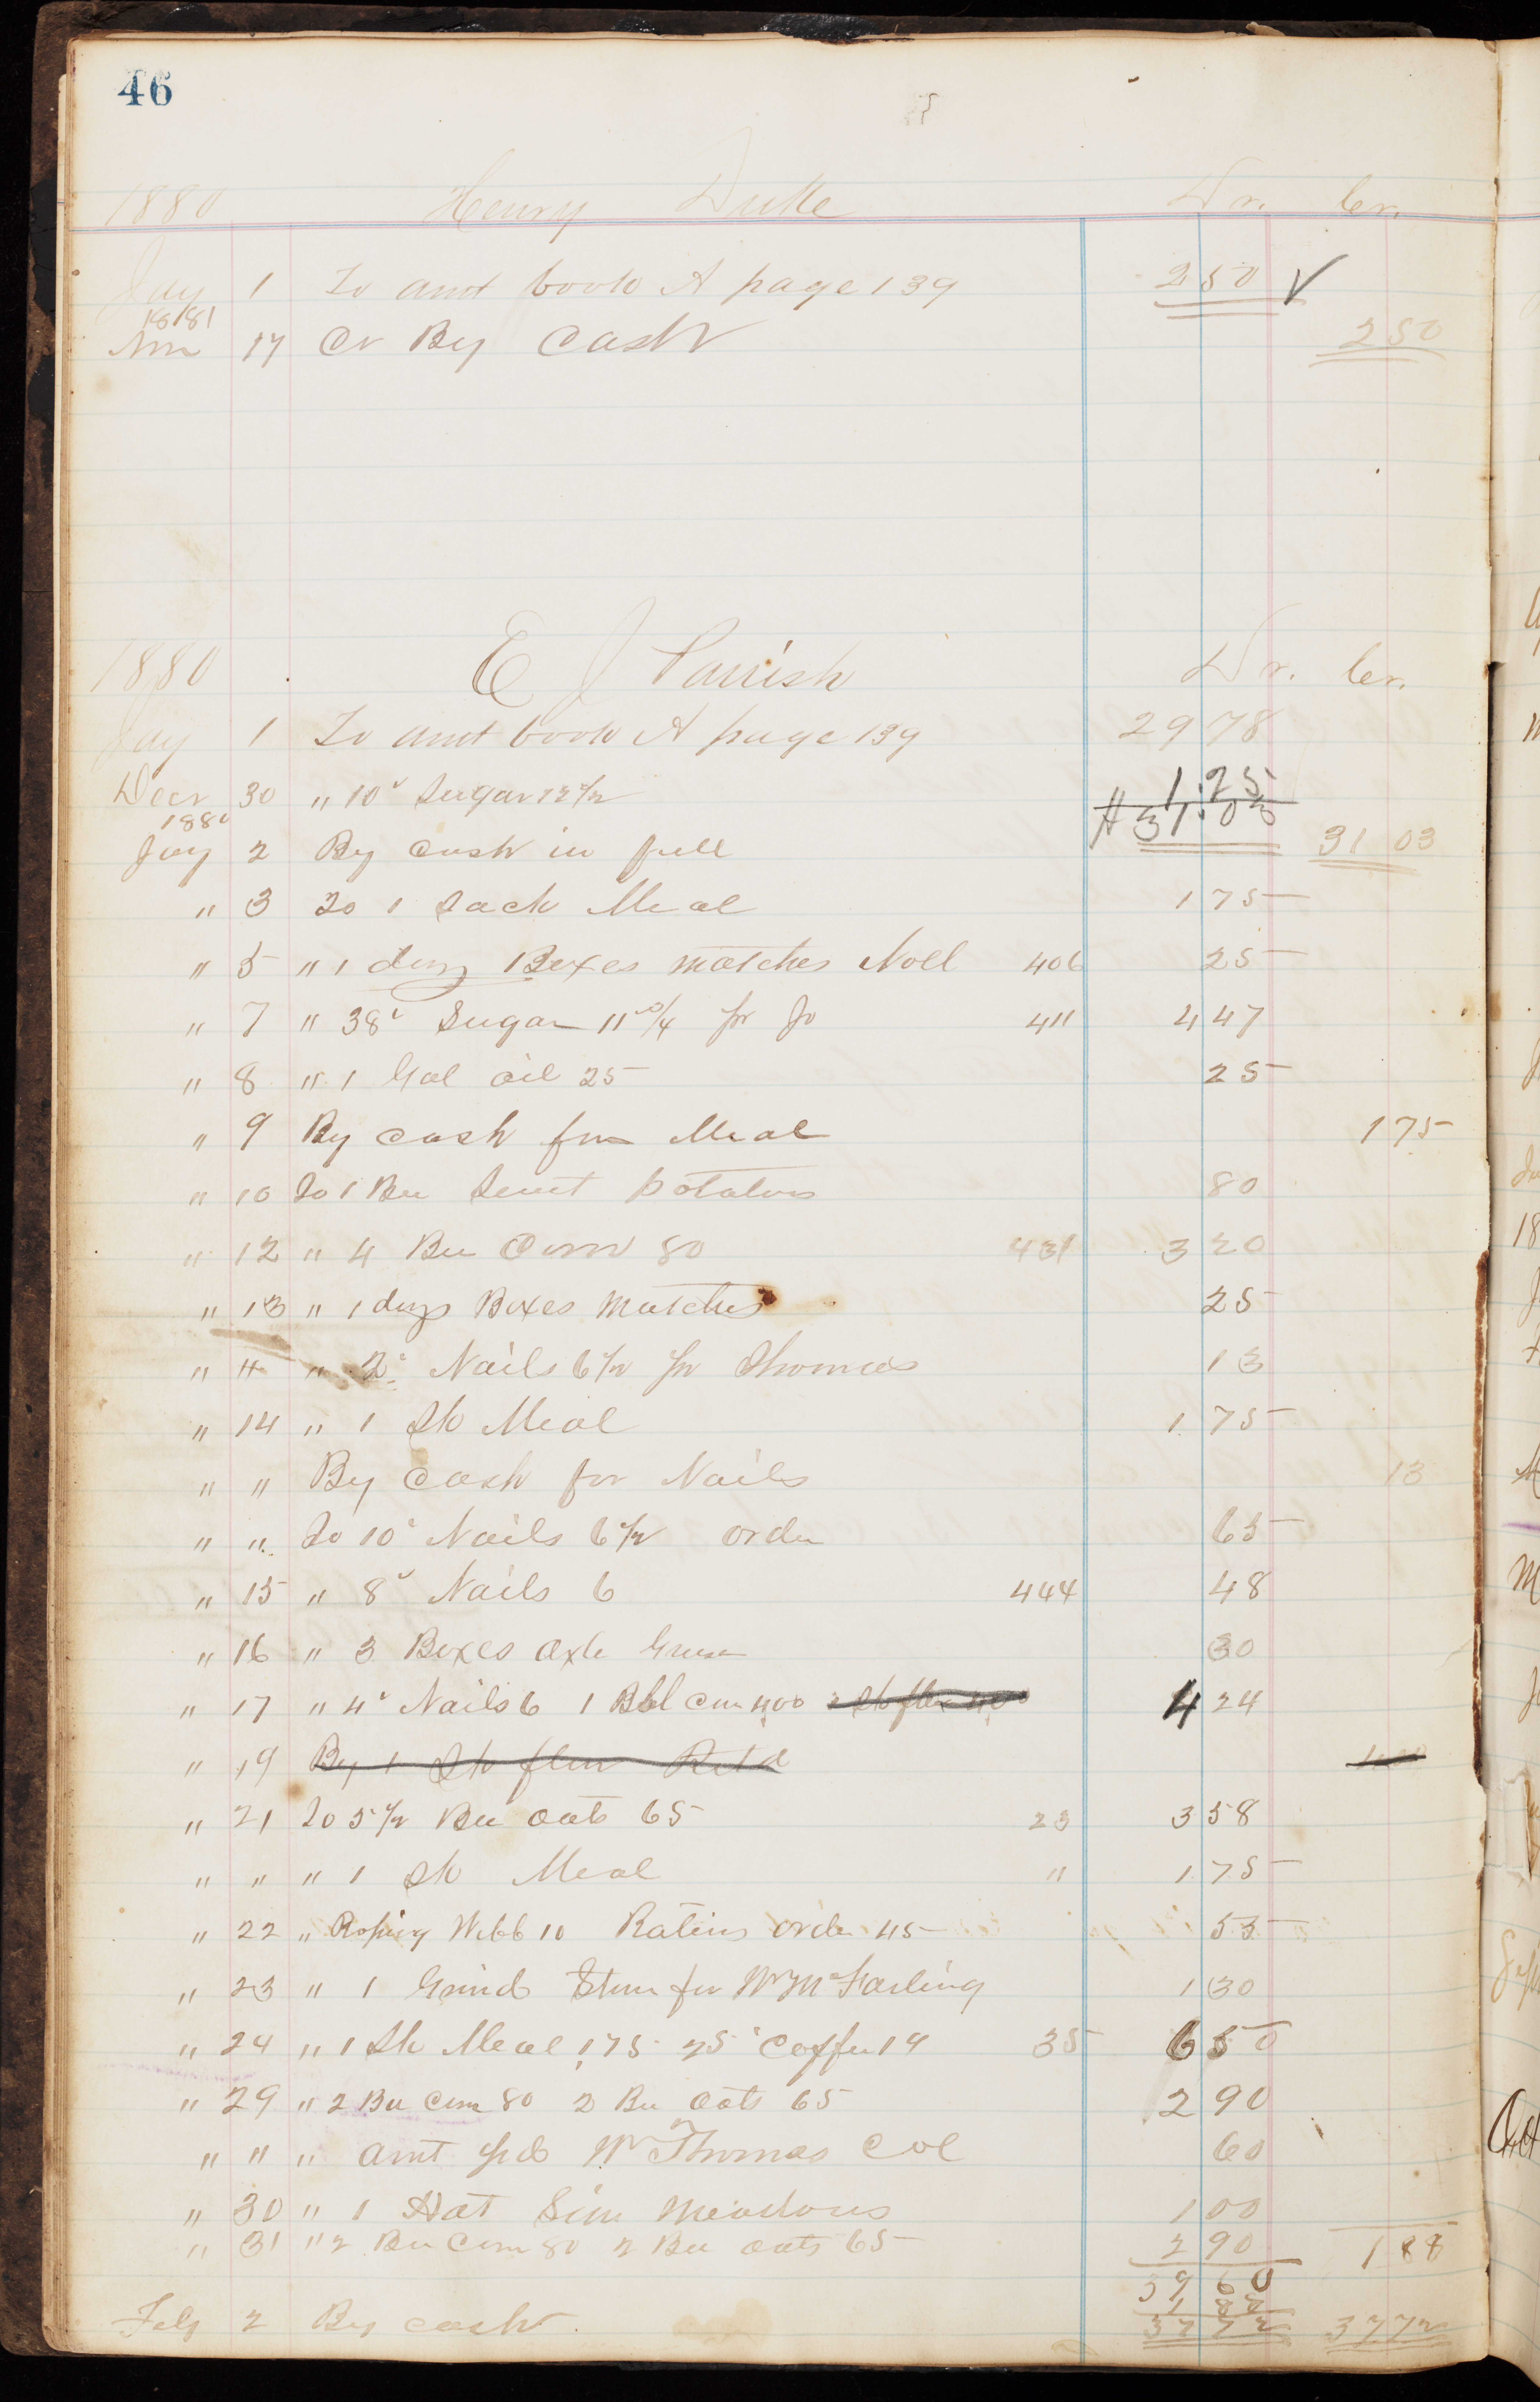 46
1880 Henry Duke Dr. Cr.
Jay 1 To amt book A page 139 2 50 √
1881
17 Cr By Cash 2 50
1880 E J Parrish Dr. Cr.
Jay 1 To amt book A page 139 29 78
Decr 30 " 10 Sugar 12½ 1.25
31.03
1880
Jay 2 By Cash in full 31 03
" 3 To 1 Sack Meal 1 75
" 5 " 1 doz Boxes matches Noell 406 25
" 7 " 38 Sugar 11¾ pr Jo 411 4 47
" 8 " 1 Gal oil 25 25
" 9 By cash for Meal 1 75
" 10 To 1 Bu Sweet potatoes 80
" 12 " 4 Bu Corn 80 431 3 20
" 13 " 1 doz Boxes Matches 25
" " " 2 Nails 6½ pr Thomas 13
" 14 " 1 Sk Meal 1 75
" " By Cash for Nails 13
" " To 10 Nails 6½ order 65
" 15 " 8 Nails 6 444 48
" 16 " 3 Boxes Axle Grease 30
" 17 " 4 Nails 6 1 Bbl Corn 400 4 24
" 19 By 1 Sk flour Retd
" 21 To 5½ Bu Oats 65 23 3 58
" " " 1 Sk Meal " 1 75
" 22 " Webb 10 order 45 55
" 23 " 1 Grind Stone for Wm McFarling 1 30
" 24 " 1 Sk Meal 175 25 Coffee 19 35 6 50
" 29 " 2 Bu Corn 80 2 Bu Oats 65 2 90
" " " amt pd Wm Thomas Col 60
" 30 " 1 Hat Sim Meadows 1 00
" 31 " 2 Bu Corn 80 2 Bu oats 65 2 90 1 88
39 60
1 88
Feby 2 By cash 37 72 37 72